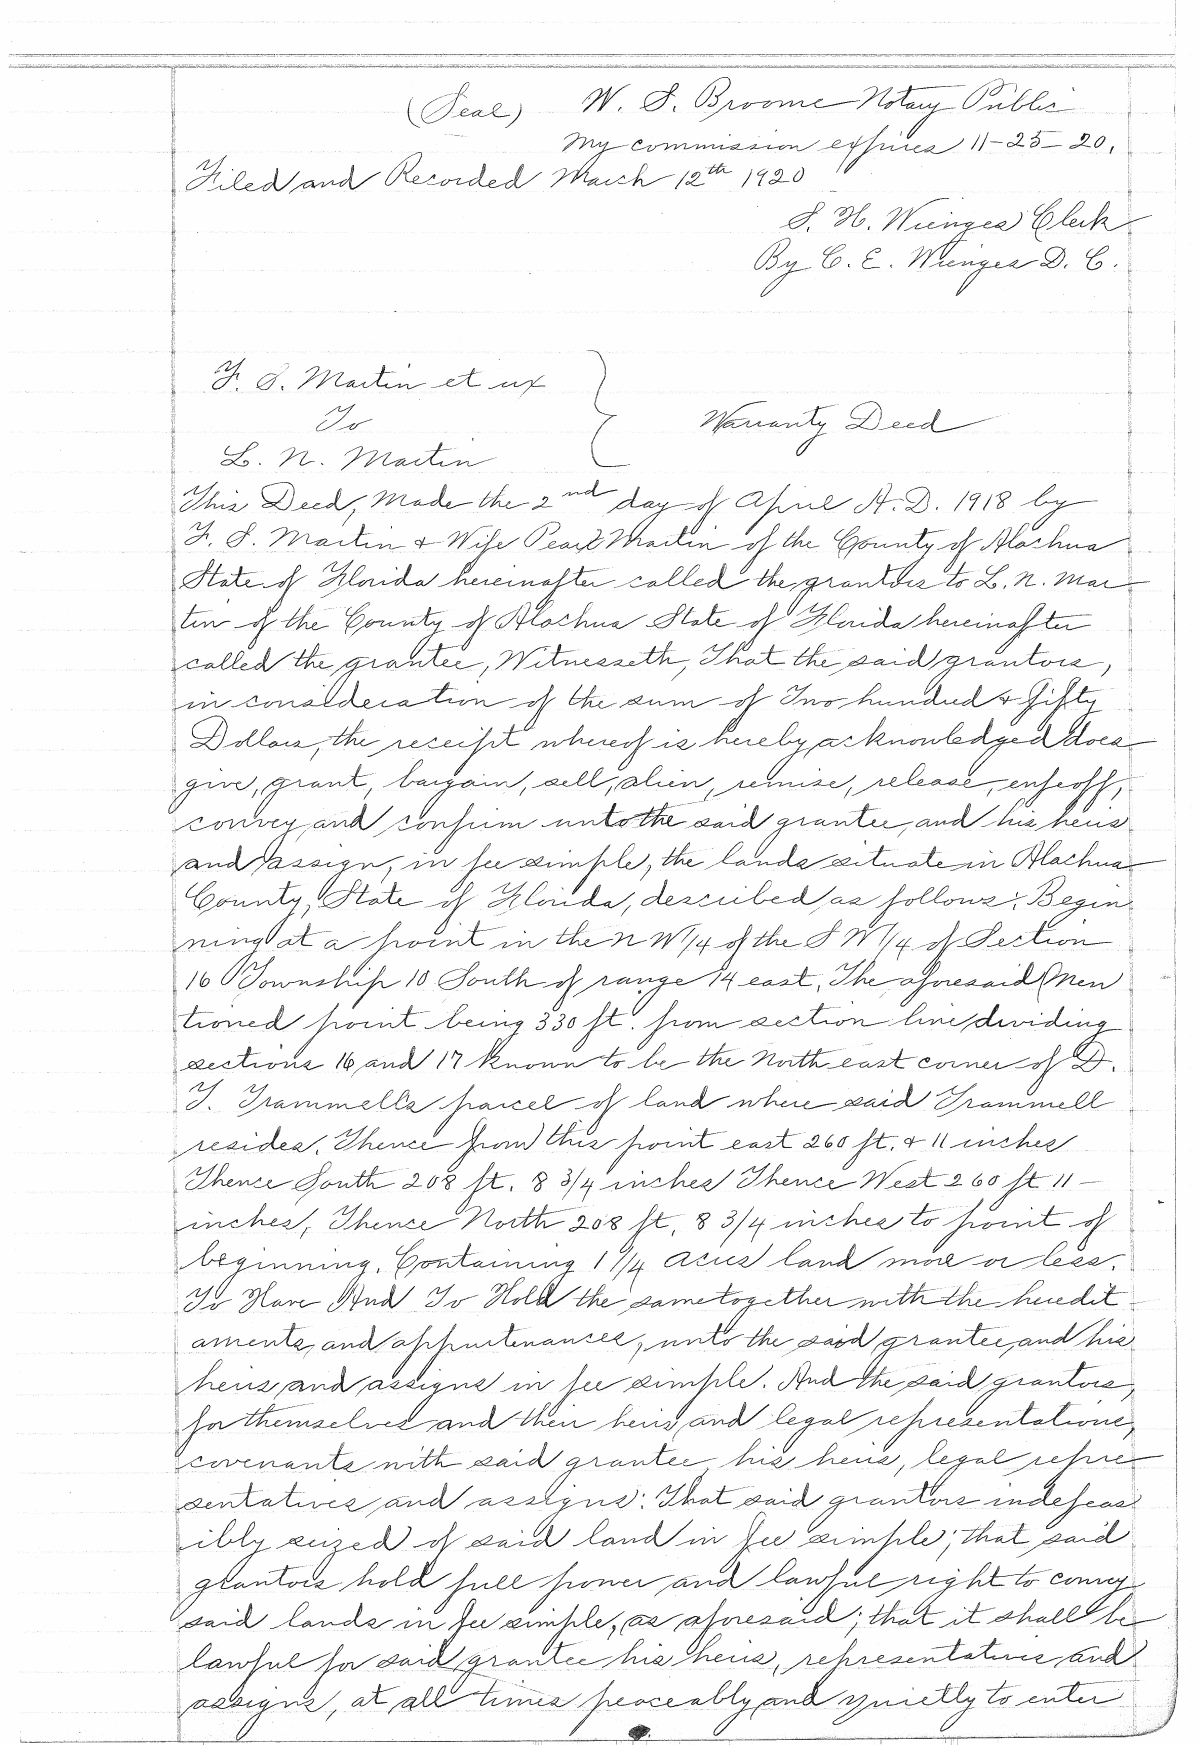 (Seal) W. S. Broome Notary Public
My commission expires 11-25-20.
Filed and Recorded March 12th 1920
S. H. Wienges Clerk
By C. E. Wienges D. C.
F. S. Martin et ux
To
Warranty Deed
L. N. Martin
This Deed, Made the 2nd day of April A.D. 1918 by
F. S. Martin & Wife Pearl Martin of the County of Alachua
State of Florida hereinafter called the grantors to L. N. Mar-
tin of the County of Alachua State of Florida hereinafter
called the grantee, Witnesseth, That the said grantors,
in consideration of the sum of Two hundred & fifty
Dollars, the receipt whereof is hereby acknowledged does
give, grant, bargain, sell, alien, remise, release, enfeoff,
convey and confirm unto the said grantee, and his heirs
and assign, in fee simple, the lands situate in Alachua
County, State of Florida, described as follows: Begin
ning at a point in the N W 1/4 of the S W 1/4 of Section
16 Township 10 South of range 14 east, The aforesaid Men
tioned point being 330 ft. from section line dividing
sections 16 and 17 known to be the North east corner of D.
T. Trammells parcel of land where said Trammell
resides. Thence from this point east 260 ft. & 11 inches
Thence South 208 ft. 8 3/4 inches Thence West 260 ft 11-
inches, Thence North 208 ft, 8 3/4 inches to point of
beginning. Containing 1 1/4 acres land more or less.
To Have And To Hold the same together with the heredit-
aments, and appurtenances, unto the said grantee, and his
heirs and assigns in fee simple. And the said grantors,
for themselves and their heirs and legal representatives,
covenants with said grantee his heirs, legal repre-
sentatives and assigns: That said grantors indefeas
ibly seized of said land in fee simple; that said
grantors hold full power and lawful right to convey
said lands in fee simple, as aforesaid; that it shall be
lawful for said grantee his heirs, representatives and
assigns, at all times peaceably and quietly to enter